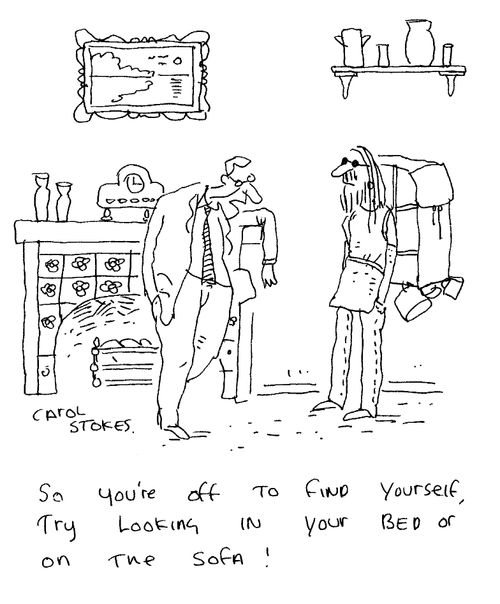 CAROL
STOKES.
So you're off to find yourself,
Try Looking in your BED or
on The Sofa!